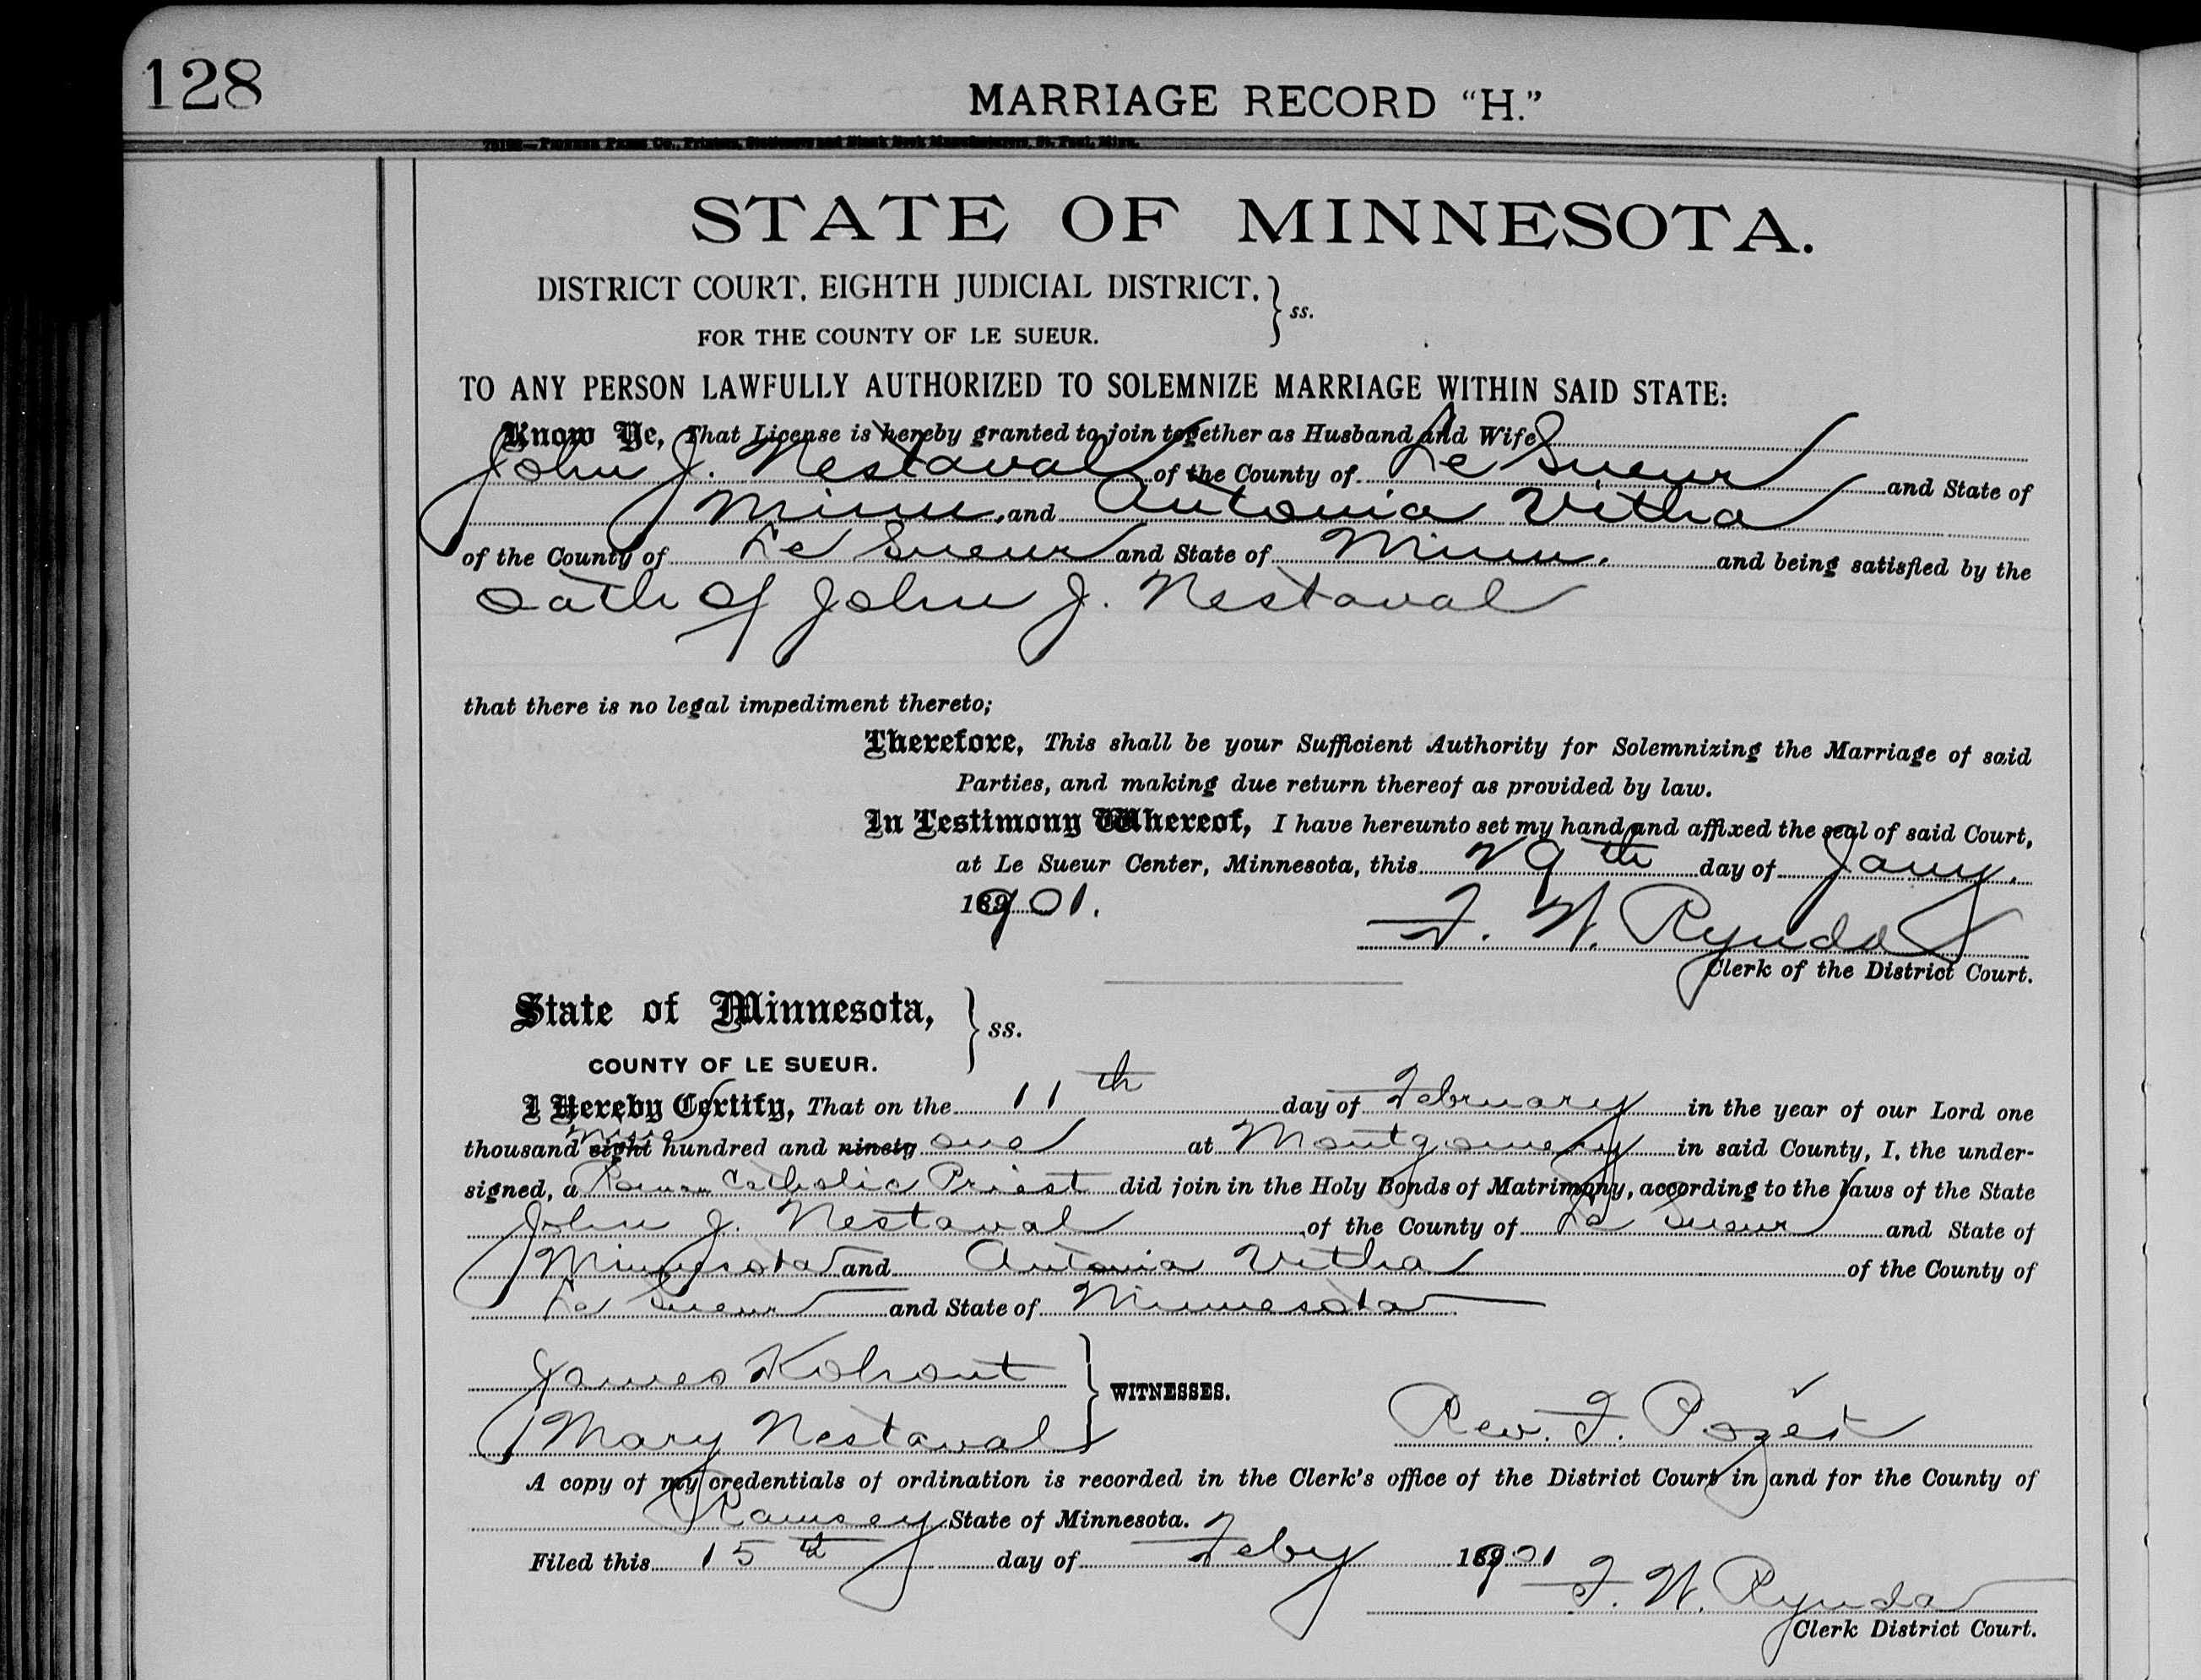 128
MARRIAGE RECORD “H.”
STATE OF MINNESOTA.
DISTRICT COURT, EIGHTH JUDICIAL DISTRICT, } ss.
FOR THE COUNTY OF LE SUEUR.
TO ANY PERSON LAWFULLY AUTHORIZED TO SOLEMNIZE MARRIAGE WITHIN SAID STATE:
Know Ye, That License is hereby granted to join together as Husband and Wife
John J. Nestaval of the County of Le Sueur and State of
Minn, and Antonia Vitha
of the County of Le Sueur and State of Minn. and being satisfied by the
oath of John J. Nestaval
that there is no legal impediment thereto;
Therefore, This shall be your Sufficient Authority for Solemnizing the Marriage of said
Parties, and making due return thereof as provided by law.
In Testimony Whereof, I have hereunto set my hand and affixed the seal of said Court,
at Le Sueur Center, Minnesota, this 29th day of Jany.
1901.
F. W. Rynda
Clerk of the District Court.
State of Minnesota, } ss.
COUNTY OF LE SUEUR.
I Hereby Certify, That on the 11th day of February in the year of our Lord one
thousand eight nine hundred and ninety one at Montgomery in said County, I, the under-
signed, a Roman Catholic Priest did join in the Holy Bonds of Matrimony, according to the laws of the State
John J. Nestaval of the County of Le Sueur and State of
Minnesota and Antonia Vitha of the County of
Le Sueur and State of Minnesota
James Kohout } WITNESSES.
Mary Nestaval
Rev. F.
A copy of my credentials of ordination is recorded in the Clerk's office of the District Court in and for the County of
Ramsey State of Minnesota.
Filed this 15th day of Feby 1901
F. W. Rynda
Clerk District Court.